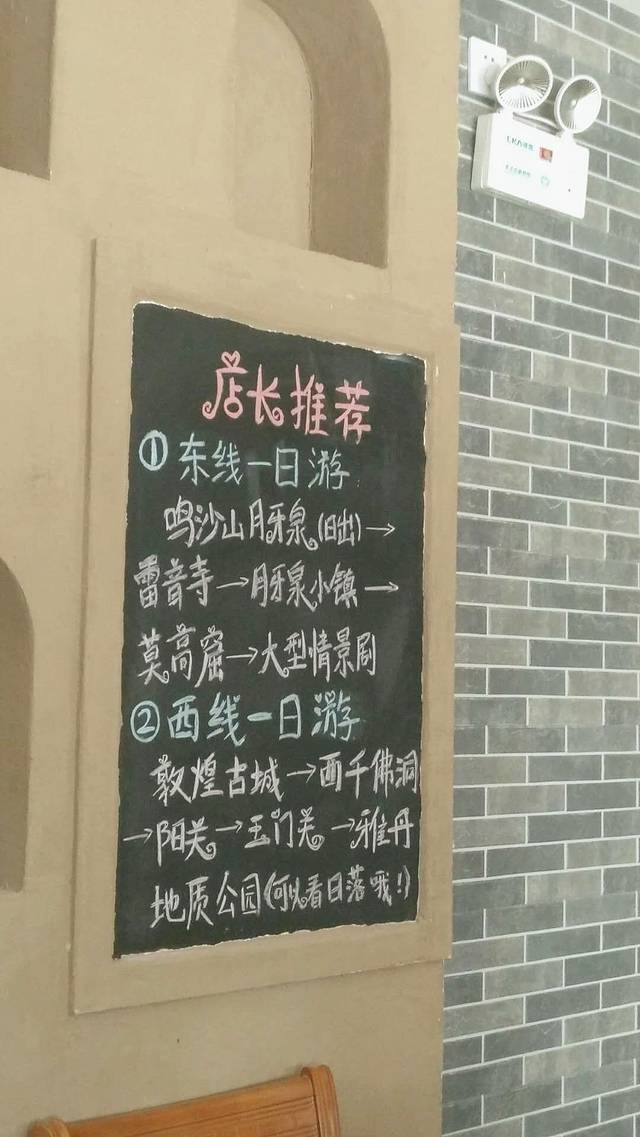 店长推荐
①东线一日游
鸣沙山月牙泉(日出)→
雷音寺→月牙泉小镇→
莫高窟→大型情景剧
②西线一日游
敦煌古城→西千佛洞
→阳关→玉门关→雅丹
地质公园(可以看日落哦!)